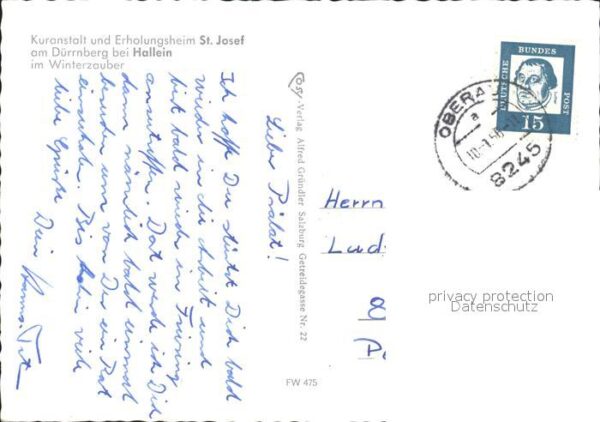 Kuranstalt und Erholungsheim St. Josef
am Dürrnberg bei Hallein
im Winterzauber
Lieber Prälat!
Ich hoffe Du stürzt Dich bald
wieder in die Arbeit und
bist bald wieder in Freising
anzutreffen. Dort werde ich Dich
dann nämlich bald einmal
besuchen um von Dir ein Rat
einzuholen. Bis dahin viele
liebe Grüße
Dein
Cosy-Verlag Alfred Gründler Salzburg Getreidegasse Nr. 22
FW 475
DEUTSCHE BUNDES POST
15
OBERA
a
8245
Herrn
Lud
privacy protection
Datenschutz